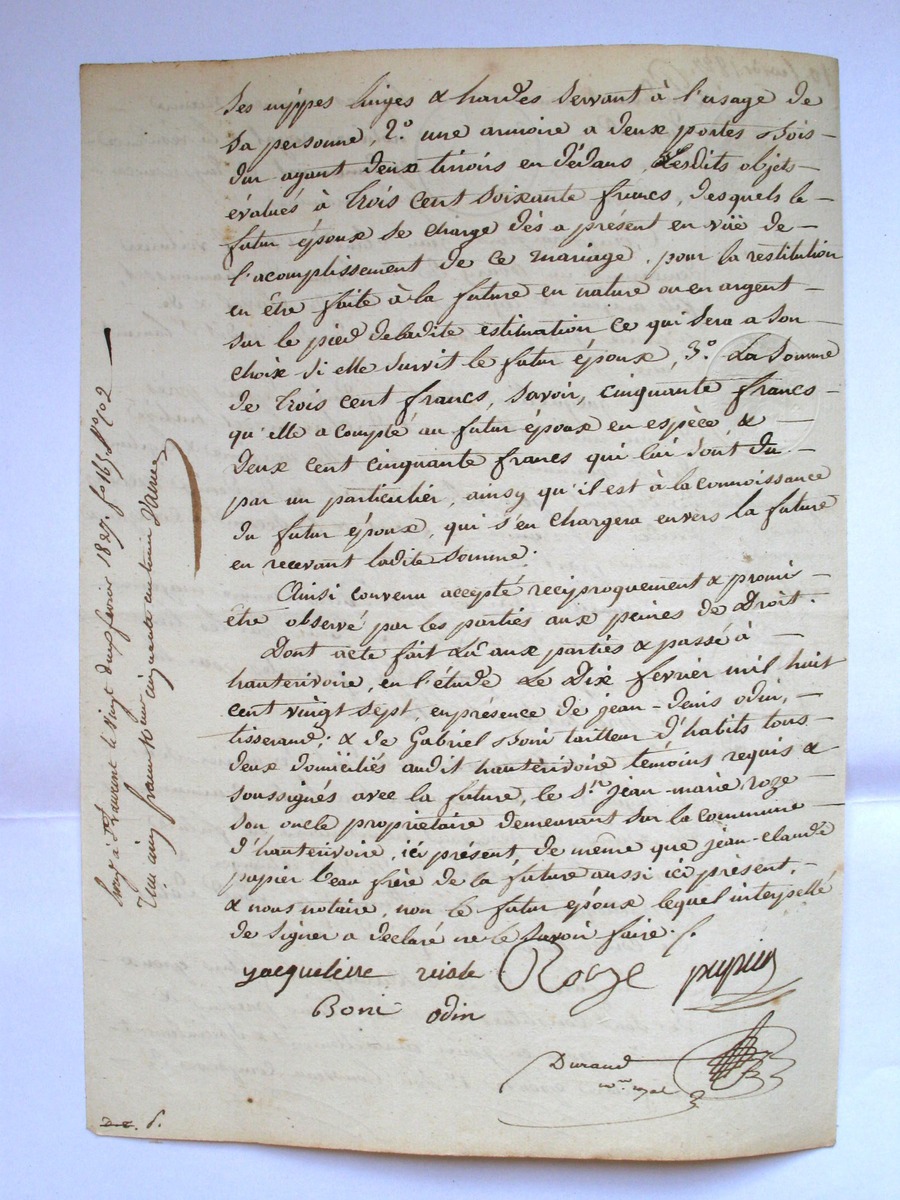 ses nippes linges & hardes servant à l'usage de
sa personne, 2.º une armoire a deux portes bois
dur ayant deux tiroirs en dédans, Lesdits objets
évalués à trois cent soixante francs, desquels le
futur époux se charge dès a présent en vüe de
l'acomplissement de ce mariage, pour la restitution
en être faite à la future en nature ou en argent
sur le pied de ladite estimation ce qui sera a son
choix si elle survit le futur époux, 3.º La somme
de trois cent francs, savoir, cinquante francs
qu'elle a compté au futur époux en espèce, &
deux cent cinquante francs qui lui sont du
par un particulier, ainsy qu'il est à la connoissance
du futur époux, qui s'en chargera envers la future
en recevant ladite somme.
Ainsi convenu accepté réciproquement & promis
être observé par les parties aux peines de Droit.
Dont acte fait Lû aux parties & passé à
hauterivoire, en l'étude Le Dix février mil huit
cent vingt sept, en présence de jean-denis odin,
tisserand; & de Gabriel Boni tailleur d'habits tous
deux domiciliés audit hauterivoire témoins requis &
soussignés avec la future, le s.r jean-marie roze
son oncle propriétaire demeurant sur la commune
d'hauterivoire, ici présent, de même que jean-claude
papier beau frère de la future aussi ici présent,
& nous notaire, non le futur époux lequel interpellé
de signer a déclaré ne le savoir faire.
jacqueline Roze papier
Boni odin
Durand
not. royal
le vingt deux février 1827. f.o 165
cinq francs cinquante centimes